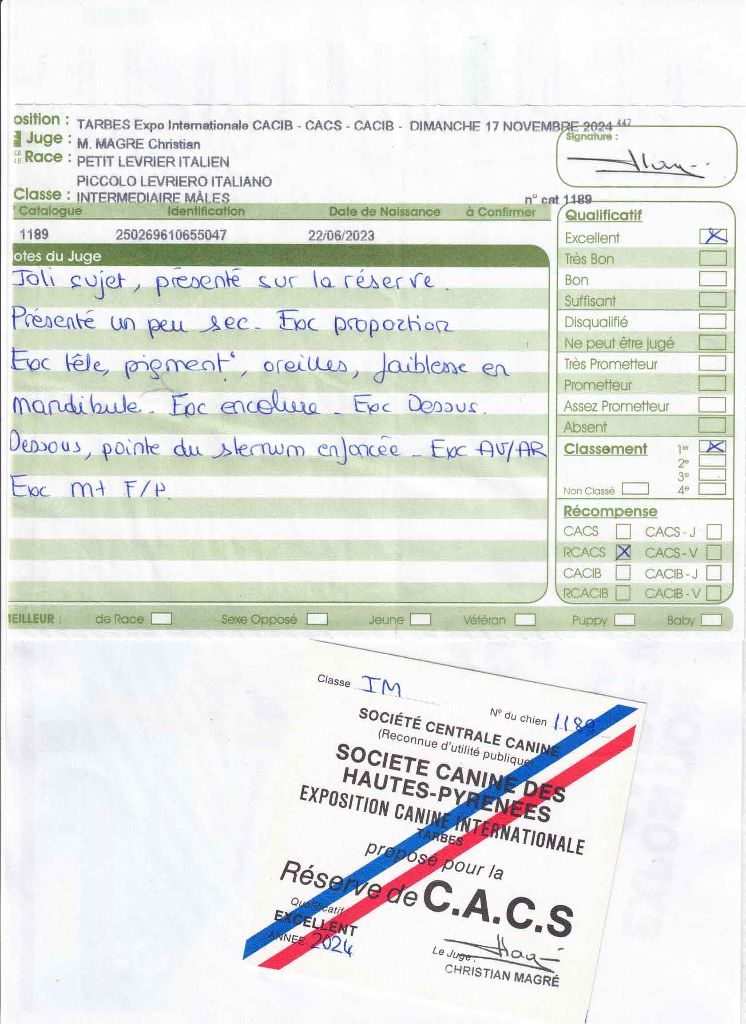 osition : TARBES Expo Internationale CACIB - CACS - CACIB - DIMANCHE 17 NOVEMBRE 2024 447
Juge : M. MAGRE Christian
Race : PETIT LEVRIER ITALIEN
PICCOLO LEVRIERO ITALIANO
Classe : INTERMEDIAIRE MÂLES n° cat 1189
Signature :
Catalogue Identification Date de Naissance à Confirmer
1189 250269610655047 22/06/2023
otes du Juge
Joli sujet, présenté sur la réserve.
Présenté un peu sec. Exc proportion
Exc tête, pigment°, oreilles, faiblesse en
mandibule. Exc encolure. Exc Dessus.
Dessous, pointe du sternum enfoncée. Exc AV/AR
Exc mt F/P.
Qualificatif
Excellent X
Très Bon
Bon
Suffisant
Disqualifié
Ne peut être jugé
Très Prometteur
Prometteur
Assez Prometteur
Absent
Classement 1er X
2e
3e
Non Classé 4e
Récompense
CACS CACS - J
RCACS X CACS - V
CACIB CACIB - J
RCACIB CACIB - V
EILLEUR : de Race Sexe Opposé Jeune Vétéran Puppy Baby
Classe IM
N° du chien 1189
SOCIÉTÉ CENTRALE CANINE
(Reconnue d'utilité publique)
SOCIETE CANINE DES
HAUTES-PYRENEES
EXPOSITION CANINE INTERNATIONALE
TARBES
propose pour la
Réserve de C.A.C.S
Qualificatif
EXCELLENT
ANNEE 2024
Le Juge :
CHRISTIAN MAGRÉ